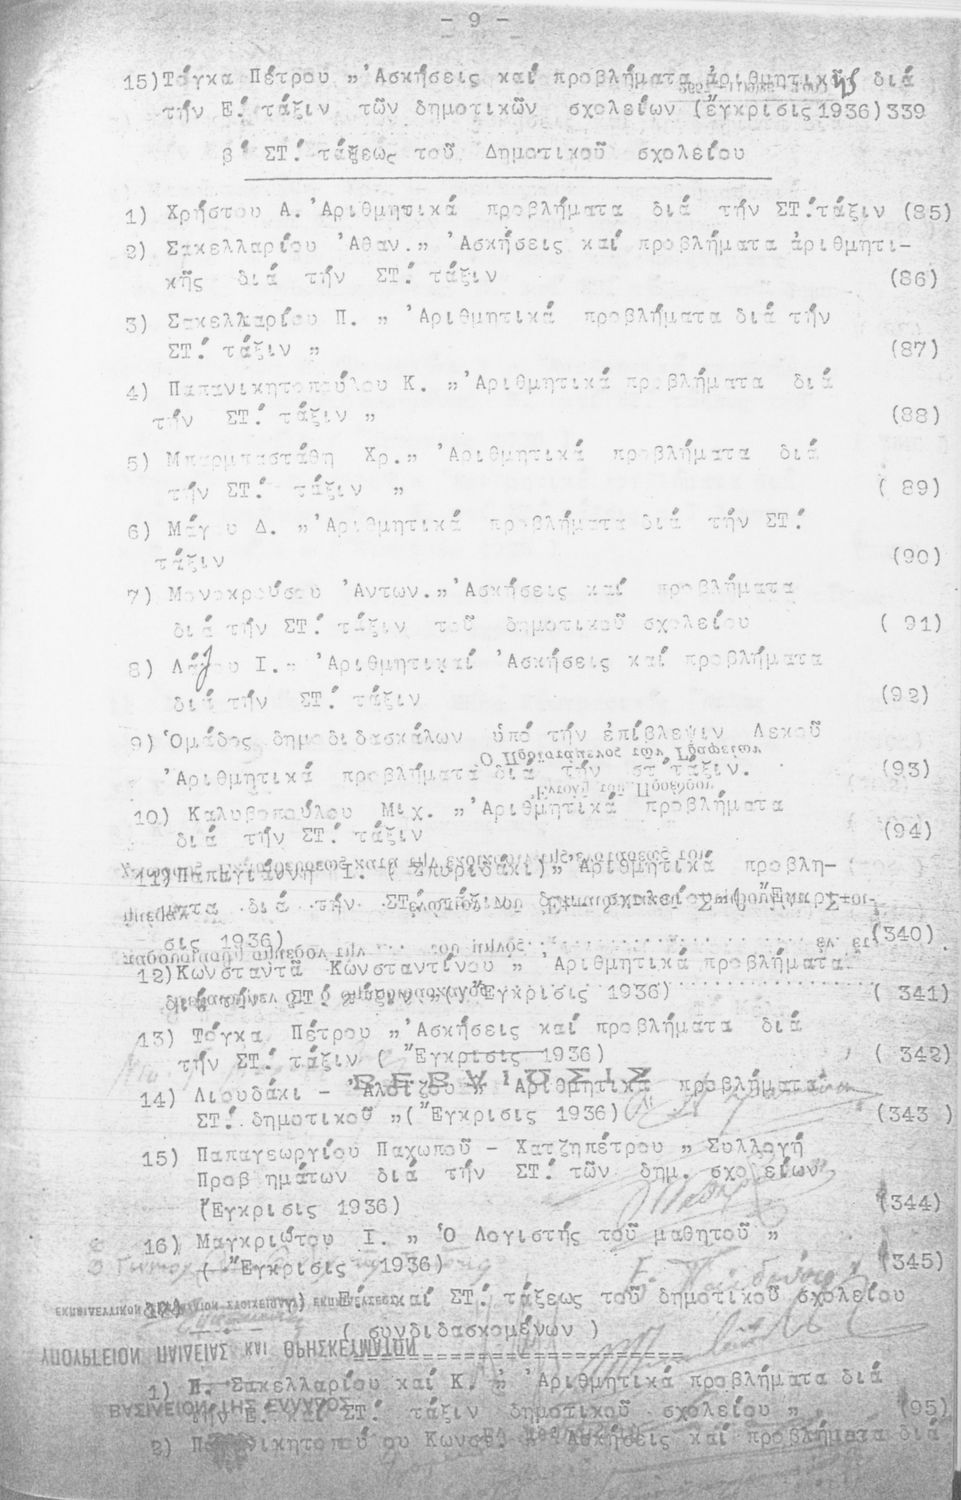 - 9 -
15)Τόγκα Πέτρου „ Ἀσκήσεις καί προβλήματα ἀριθμητικῆς διά
τήν Ε΄. τάξιν τῶν δημοτικῶν σχολείων (ἔγκρισις 1936)339
β΄ ΣΤ΄. τάξεως τοῦ Δημοτικοῦ σχολείου
1) Χρήστου Α. Ἀριθμητικά προβλήματα διά τήν ΣΤ΄.τάξιν (85)
2) Σακελλαρίου Ἀθαν.„ Ἀσκήσεις καί προβλήματα ἀριθμητι-
κῆς διά τήν ΣΤ΄. τάξιν (86)
3) Σακελλαρίου Π. „ Ἀριθμητικά προβλήματα διά τήν
ΣΤ΄. τάξιν „ (87)
4) Παπανικητοπούλου Κ. „ Ἀριθμητικά προβλήματα διά
τήν ΣΤ΄. τάξιν „ (88)
5) Μπαρμπαστάθη Χρ.„ Ἀριθμητικά προβλήματα διά
τήν ΣΤ΄. τάξιν „ ( 89)
6) Μάγου Δ. „ Ἀριθμητικά προβλήματα διά τήν ΣΤ΄.
τάξιν (90)
7) Μονοκρούσου Ἀντων.„ Ἀσκήσεις καί προβλήματα
διά τήν ΣΤ΄. τάξιν τοῦ δημοτικοῦ σχολείου ( 91)
8) Λάζου Ι.„ Ἀριθμητικαί Ἀσκήσεις καί προβλήματα
διά τήν ΣΤ΄. τάξιν (92)
9) Ὁμάδος δημοδιδασκάλων ὑπό τήν ἐπίβλεψιν Λεκοῦ
Ἀριθμητικά προβλήματα διά τήν στ΄ τάξιν. (93)
10) Καλυβοπούλου Μιχ. „ Ἀριθμητικά προβλήματα
διά τήν ΣΤ΄. τάξιν (94)
11)Παπαγιάννη Ι. ( Σπυριδάκι)„ Ἀριθμητικά προβλή-
ματα διά τήν ΣΤ΄ (Ἔγκρι-
σις 1936) (340)
12)Κωνσταντᾶ Κωνσταντίνου „ Ἀριθμητικά προβλήματα
διά τήν ΣΤ΄. τάξιν „ (Ἔγκρισις 1936) ( 341)
13) Τόγκα Πέτρου „ Ἀσκήσεις καί προβλήματα διά
τήν ΣΤ΄. τάξιν ( Ἔγκρισις 1936) ( 342)
14) Λιουδάκι - Ἀλοΐζου „ Ἀριθμητικά προβλήματα
ΣΤ΄. δημοτικοῦ „(Ἔγκρισις 1936) (343 )
15) Παπαγεωργίου Παχωποῦ - Χατζηπέτρου „ Συλλογή
Προβ ημάτων διά τήν ΣΤ΄. τῶν δημ. σχολείων
(Ἔγκρισις 1936) (344)
16) Μαγκριώτου Ι. „ Ὁ Λογιστής τοῦ μαθητοῦ „
( Ἔγκρισις 1936) (345)
γ) Ε΄. καί ΣΤ΄. τάξεως τοῦ δημοτικοῦ σχολείου
( συνδιδασκομένων )
1) Π. Σακελλαρίου καί Κ. „ Ἀριθμητικά προβλήματα διά
τήν Ε΄. καί ΣΤ΄. τάξιν δημοτικοῦ σχολείου „ (95)
2) Παπανικητοπού ου Κωνσ. „ Ἀσκήσεις καί προβλήματα διά